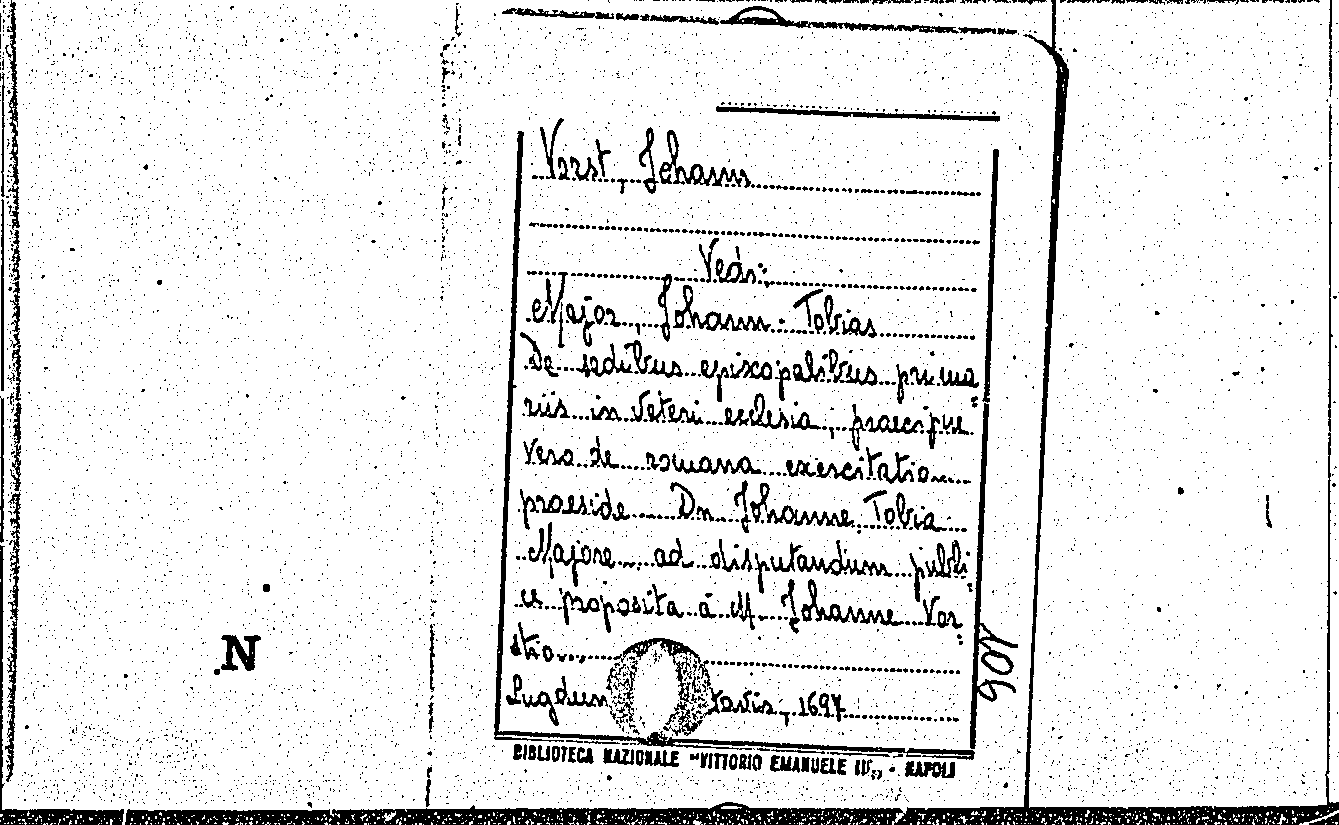 Vorst, Johann
Vedi:
Major, Johann-Tobias
De sedibus episcopalibus prima
riis in veteri ecclesia, praecipue
vero de romana exercitatio
praeside Dn Johanne Tobia
Majore ad disputandum publi
ce proposita à M. Johanne Vor
stio...
Lugdun tavis, 1697
BIBLIOTECA NAZIONALE "VITTORIO EMANUELE III" - NAPOLI
N
106